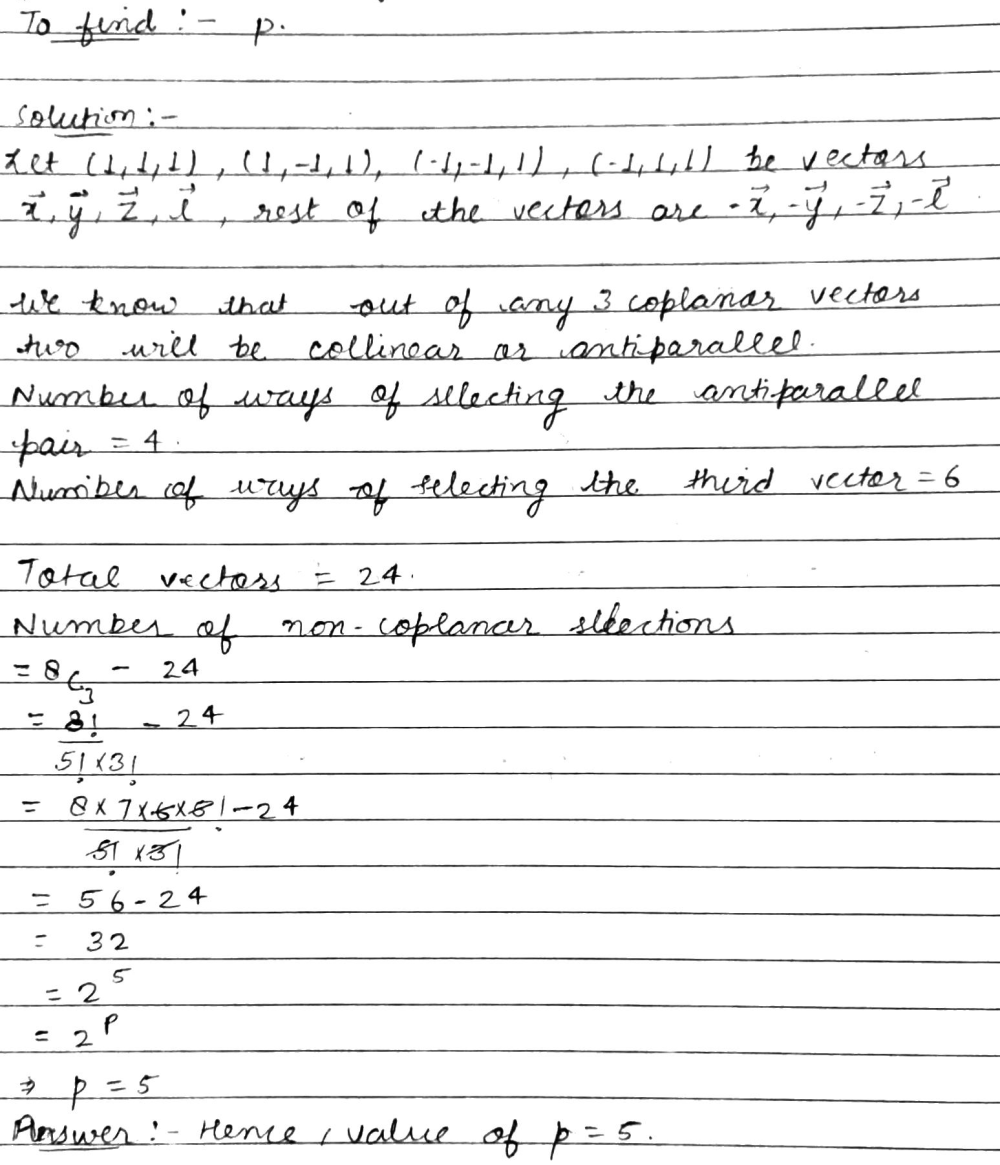 To find :- p.
Solution :-
Let (1,1,1), (1,-1,1), (-1,-1,1), (-1,1,1) be vectors
x⃗, y⃗, z⃗, l⃗, rest of the vectors are -x⃗, -y⃗, -z⃗, -l⃗
We know that out of any 3 coplanar vectors
two will be collinear or antiparallel.
Number of ways of selecting the antiparallel
pair = 4.
Number of ways of selecting the third vector = 6
Total vectors = 24.
Number of non-coplanar selections
= 8C₃ - 24
= 8! - 24
5! × 3!
= 8 × 7 × 6 × 5! - 24
5! × 3!
= 56 - 24
= 32
= 2⁵
= 2ᵖ
⇒ p = 5
Answer :- Hence, value of p = 5.